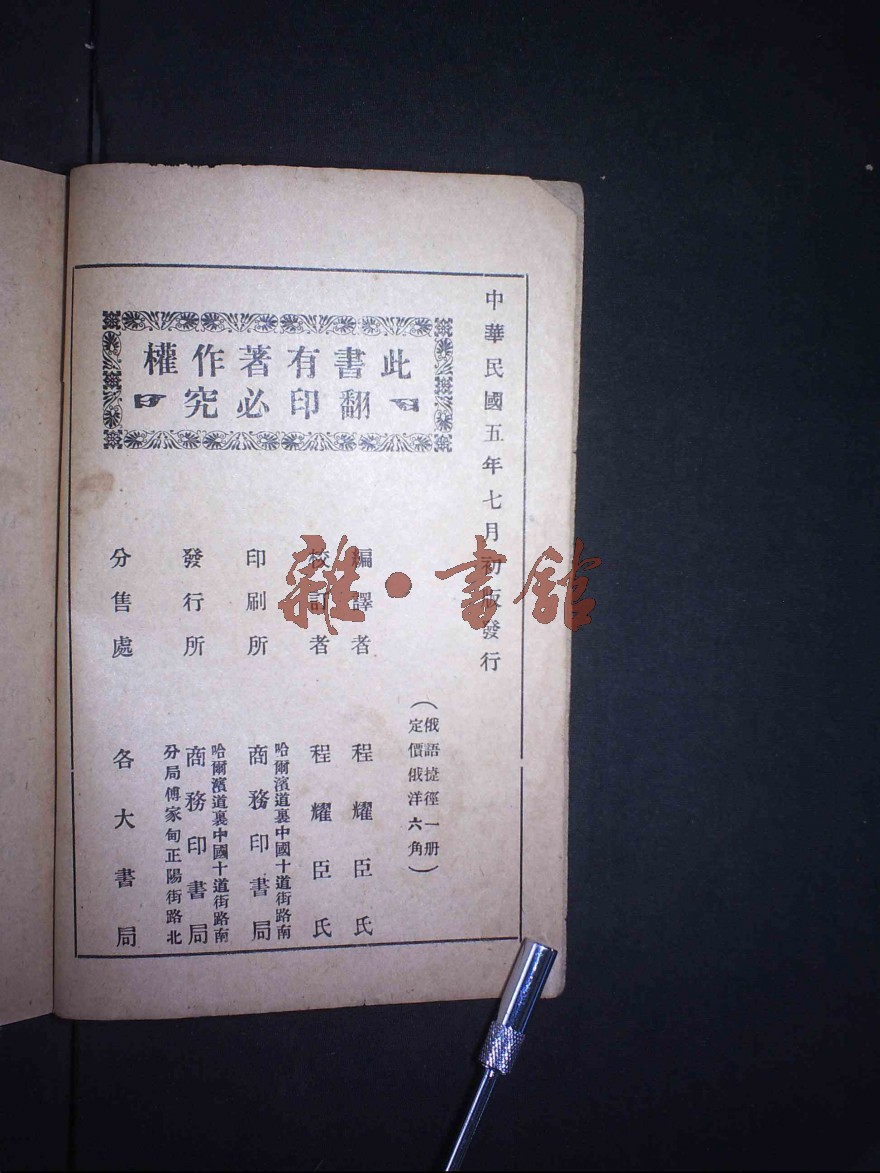 中華民國五年七月初版發行
此書有著作權
翻印必究
(俄語捷徑一册
定價俄洋六角)
編譯者 程耀臣氏
校訂者 程耀臣氏
印刷所 哈爾濱道裏中國十道街路南
商務印書局
發行所 哈爾濱道裏中國十道街路南
商務印書局
分局傅家甸正陽街路北
分售處 各大書局
雜·書館